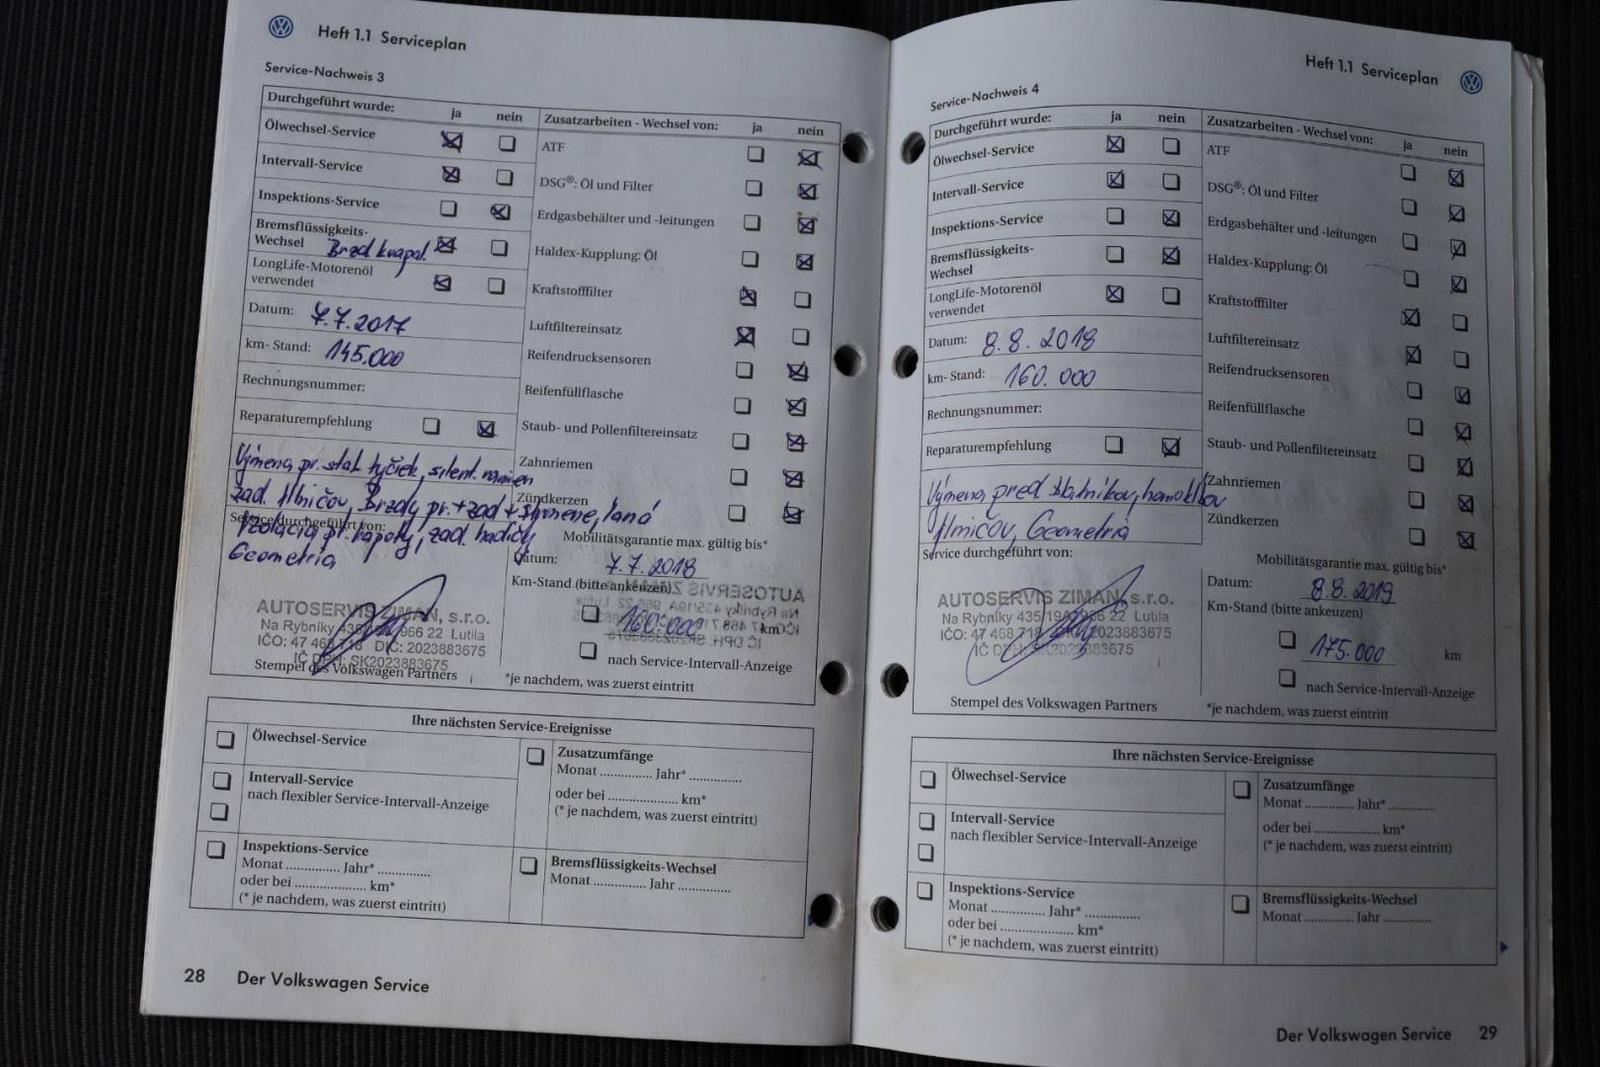 Heft 1.1 Serviceplan
Service-Nachweis 3
Durchgeführt wurde: ja nein
Ölwechsel-Service
Intervall-Service
Inspektions-Service
Bremsflüssigkeits-
Wechsel Brzd kvapal.
LongLife-Motorenöl
verwendet
Datum: 7.7.2017
km-Stand: 145.000
Rechnungsnummer:
Reparaturempfehlung
Výmena pr. stab tyčiek, silent. ramien
zad. tlmičov, Brzdy pr. + zad + strmene, laná
Service durchgeführt von:
Izolácia pr. kapoty, zad. hadičky
Geometria
AUTOSERVIS ZIMAN, s.r.o.
Na Rybníky 435/19A, 966 22 Lutila
IČO: 47 468 718 DIČ: 2023883675
IČ DPH: SK2023883675
Stempel des Volkswagen Partners
Zusatzarbeiten - Wechsel von: ja nein
ATF
DSG®: Öl und Filter
Erdgasbehälter und -leitungen
Haldex-Kupplung: Öl
Kraftstofffilter
Luftfiltereinsatz
Reifendrucksensoren
Reifenfüllflasche
Staub- und Pollenfiltereinsatz
Zahnriemen
Zündkerzen
Mobilitätsgarantie max. gültig bis*
Datum: 7.7.2018
Km-Stand (bitte ankeuzen)
160.000 km
nach Service-Intervall-Anzeige
*je nachdem, was zuerst eintritt
Ihre nächsten Service-Ereignisse
Ölwechsel-Service
Intervall-Service
nach flexibler Service-Intervall-Anzeige
Inspektions-Service
Monat .............. Jahr* ..............
oder bei .................. km*
(* je nachdem, was zuerst eintritt)
Zusatzumfänge
Monat .............. Jahr* ..............
oder bei .................. km*
(* je nachdem, was zuerst eintritt)
Bremsflüssigkeits-Wechsel
Monat .............. Jahr ..............
28 Der Volkswagen Service
Heft 1.1 Serviceplan
Service-Nachweis 4
Durchgeführt wurde: ja nein
Ölwechsel-Service
Intervall-Service
Inspektions-Service
Bremsflüssigkeits-
Wechsel
LongLife-Motorenöl
verwendet
Datum: 8.8.2018
km-Stand: 160.000
Rechnungsnummer:
Reparaturempfehlung
Výmena pred
tlmičov, Geometria
Service durchgeführt von:
AUTOSERVIS ZIMAN, s.r.o.
Na Rybníky 435/19A, 966 22 Lutila
IČO: 47 468 718 2023883675
IČ DPH: SK2023883675
Stempel des Volkswagen Partners
Zusatzarbeiten - Wechsel von: ja nein
ATF
DSG®: Öl und Filter
Erdgasbehälter und -leitungen
Haldex-Kupplung: Öl
Kraftstofffilter
Luftfiltereinsatz
Reifendrucksensoren
Reifenfüllflasche
Staub- und Pollenfiltereinsatz
Zahnriemen
Zündkerzen
Mobilitätsgarantie max. gültig bis*
Datum: 8.8.2019
Km-Stand (bitte ankeuzen)
175.000 km
nach Service-Intervall-Anzeige
*je nachdem, was zuerst eintritt
Ihre nächsten Service-Ereignisse
Ölwechsel-Service
Intervall-Service
nach flexibler Service-Intervall-Anzeige
Inspektions-Service
Monat .............. Jahr* ..............
oder bei .................. km*
(* je nachdem, was zuerst eintritt)
Zusatzumfänge
Monat .............. Jahr* ..............
oder bei .................. km*
(* je nachdem, was zuerst eintritt)
Bremsflüssigkeits-Wechsel
Monat .............. Jahr ..............
Der Volkswagen Service 29